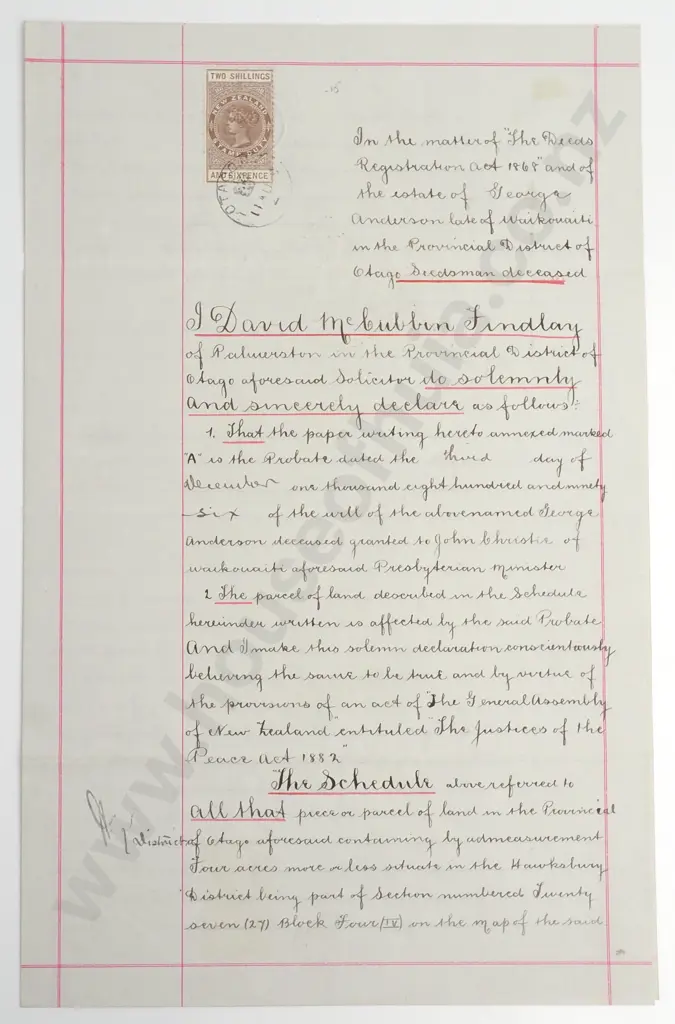 TWO SHILLINGS
NEW ZEALAND
STAMP DUTY
AND SIXPENCE
OTAGO
In the matter of "The Deeds
Registration Act 1868" and of
the estate of George
Anderson late of Waikouaiti
in the Provincial District of
Otago Seedsman deceased
I David McCubbin Findlay
of Palmerston in the Provincial District of
Otago aforesaid Solicitor do solemnly
and sincerely declare as follows:
1. That the paper writing hereto annexed marked
"A" is the Probate dated the third day of
December one thousand eight hundred and ninety
-six of the will of the abovenamed George
Anderson deceased granted to John Christie of
Waikouaiti aforesaid Presbyterian Minister
2 The parcel of land described in the Schedule
hereunder written is affected by the said Probate
And I make this solemn declaration conscientiously
believing the same to be true and by virtue of
the provisions of an act of "The General Assembly
of New Zealand" entituled "The Justices of the
Peace Act 1882"
"The Schedule above referred to
All that piece or parcel of land in the Provincial
District of Otago aforesaid containing by admeasurement
Four acres more or less situate in the Hawksbury
District being part of Section numbered Twenty
seven (27) Block Four (IV) on the map of the said
www.houseofhuia.co.nz